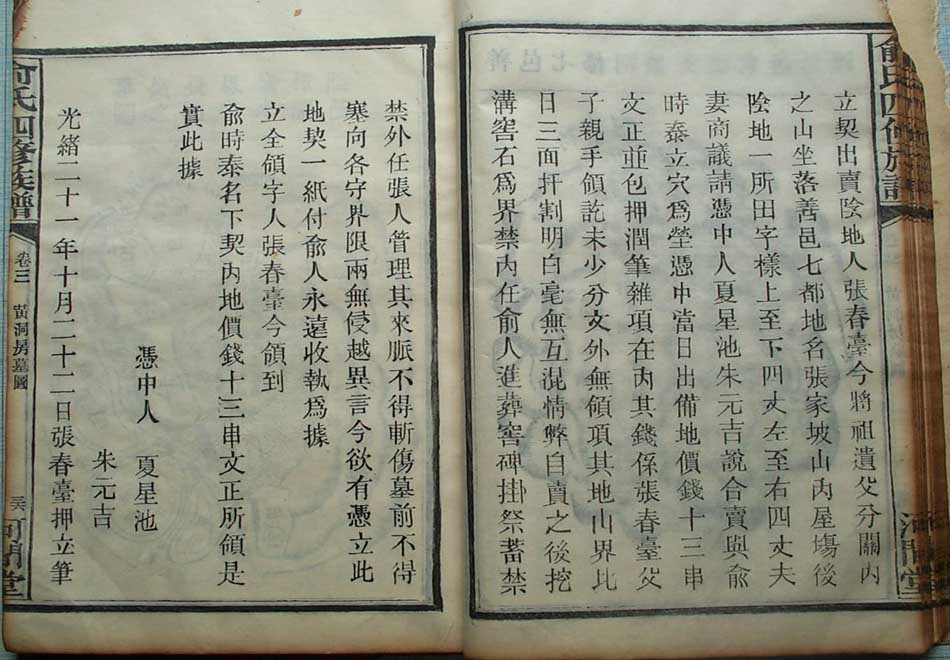 俞氏四修族譜
河間堂
立契出賣陰地人張春臺今將祖遺父分關內
之山坐落善邑七都地名張家坡山內屋塲後
陰地一所田字樣上至下四丈左至右四丈夫
妻商議請憑中人夏星池朱元吉說合賣與俞
時泰立穴爲塋憑中當日出備地價錢十三串
文正並包押潤筆雜項在內其錢係張春臺父
子親手領訖未少分文外無領項其地山界比
日三面扦割明白毫無互混情弊自賣之後挖
溝窖石爲界禁內任俞人進葬窖碑掛祭蓄禁
禁外任張人管理其來脈不得斬傷墓前不得
塞向各守界限兩無侵越異言今欲有憑立此
地契一紙付俞人永遠收執爲據
立全領字人張春臺今領到
俞時泰名下契內地價錢十三串文正所領是
實此據
憑中人 夏星池
朱元吉
光緒二十一年十月二十二日張春臺押立筆
俞氏四修族譜
卷三 黃洞房墓圖
三六
河間堂